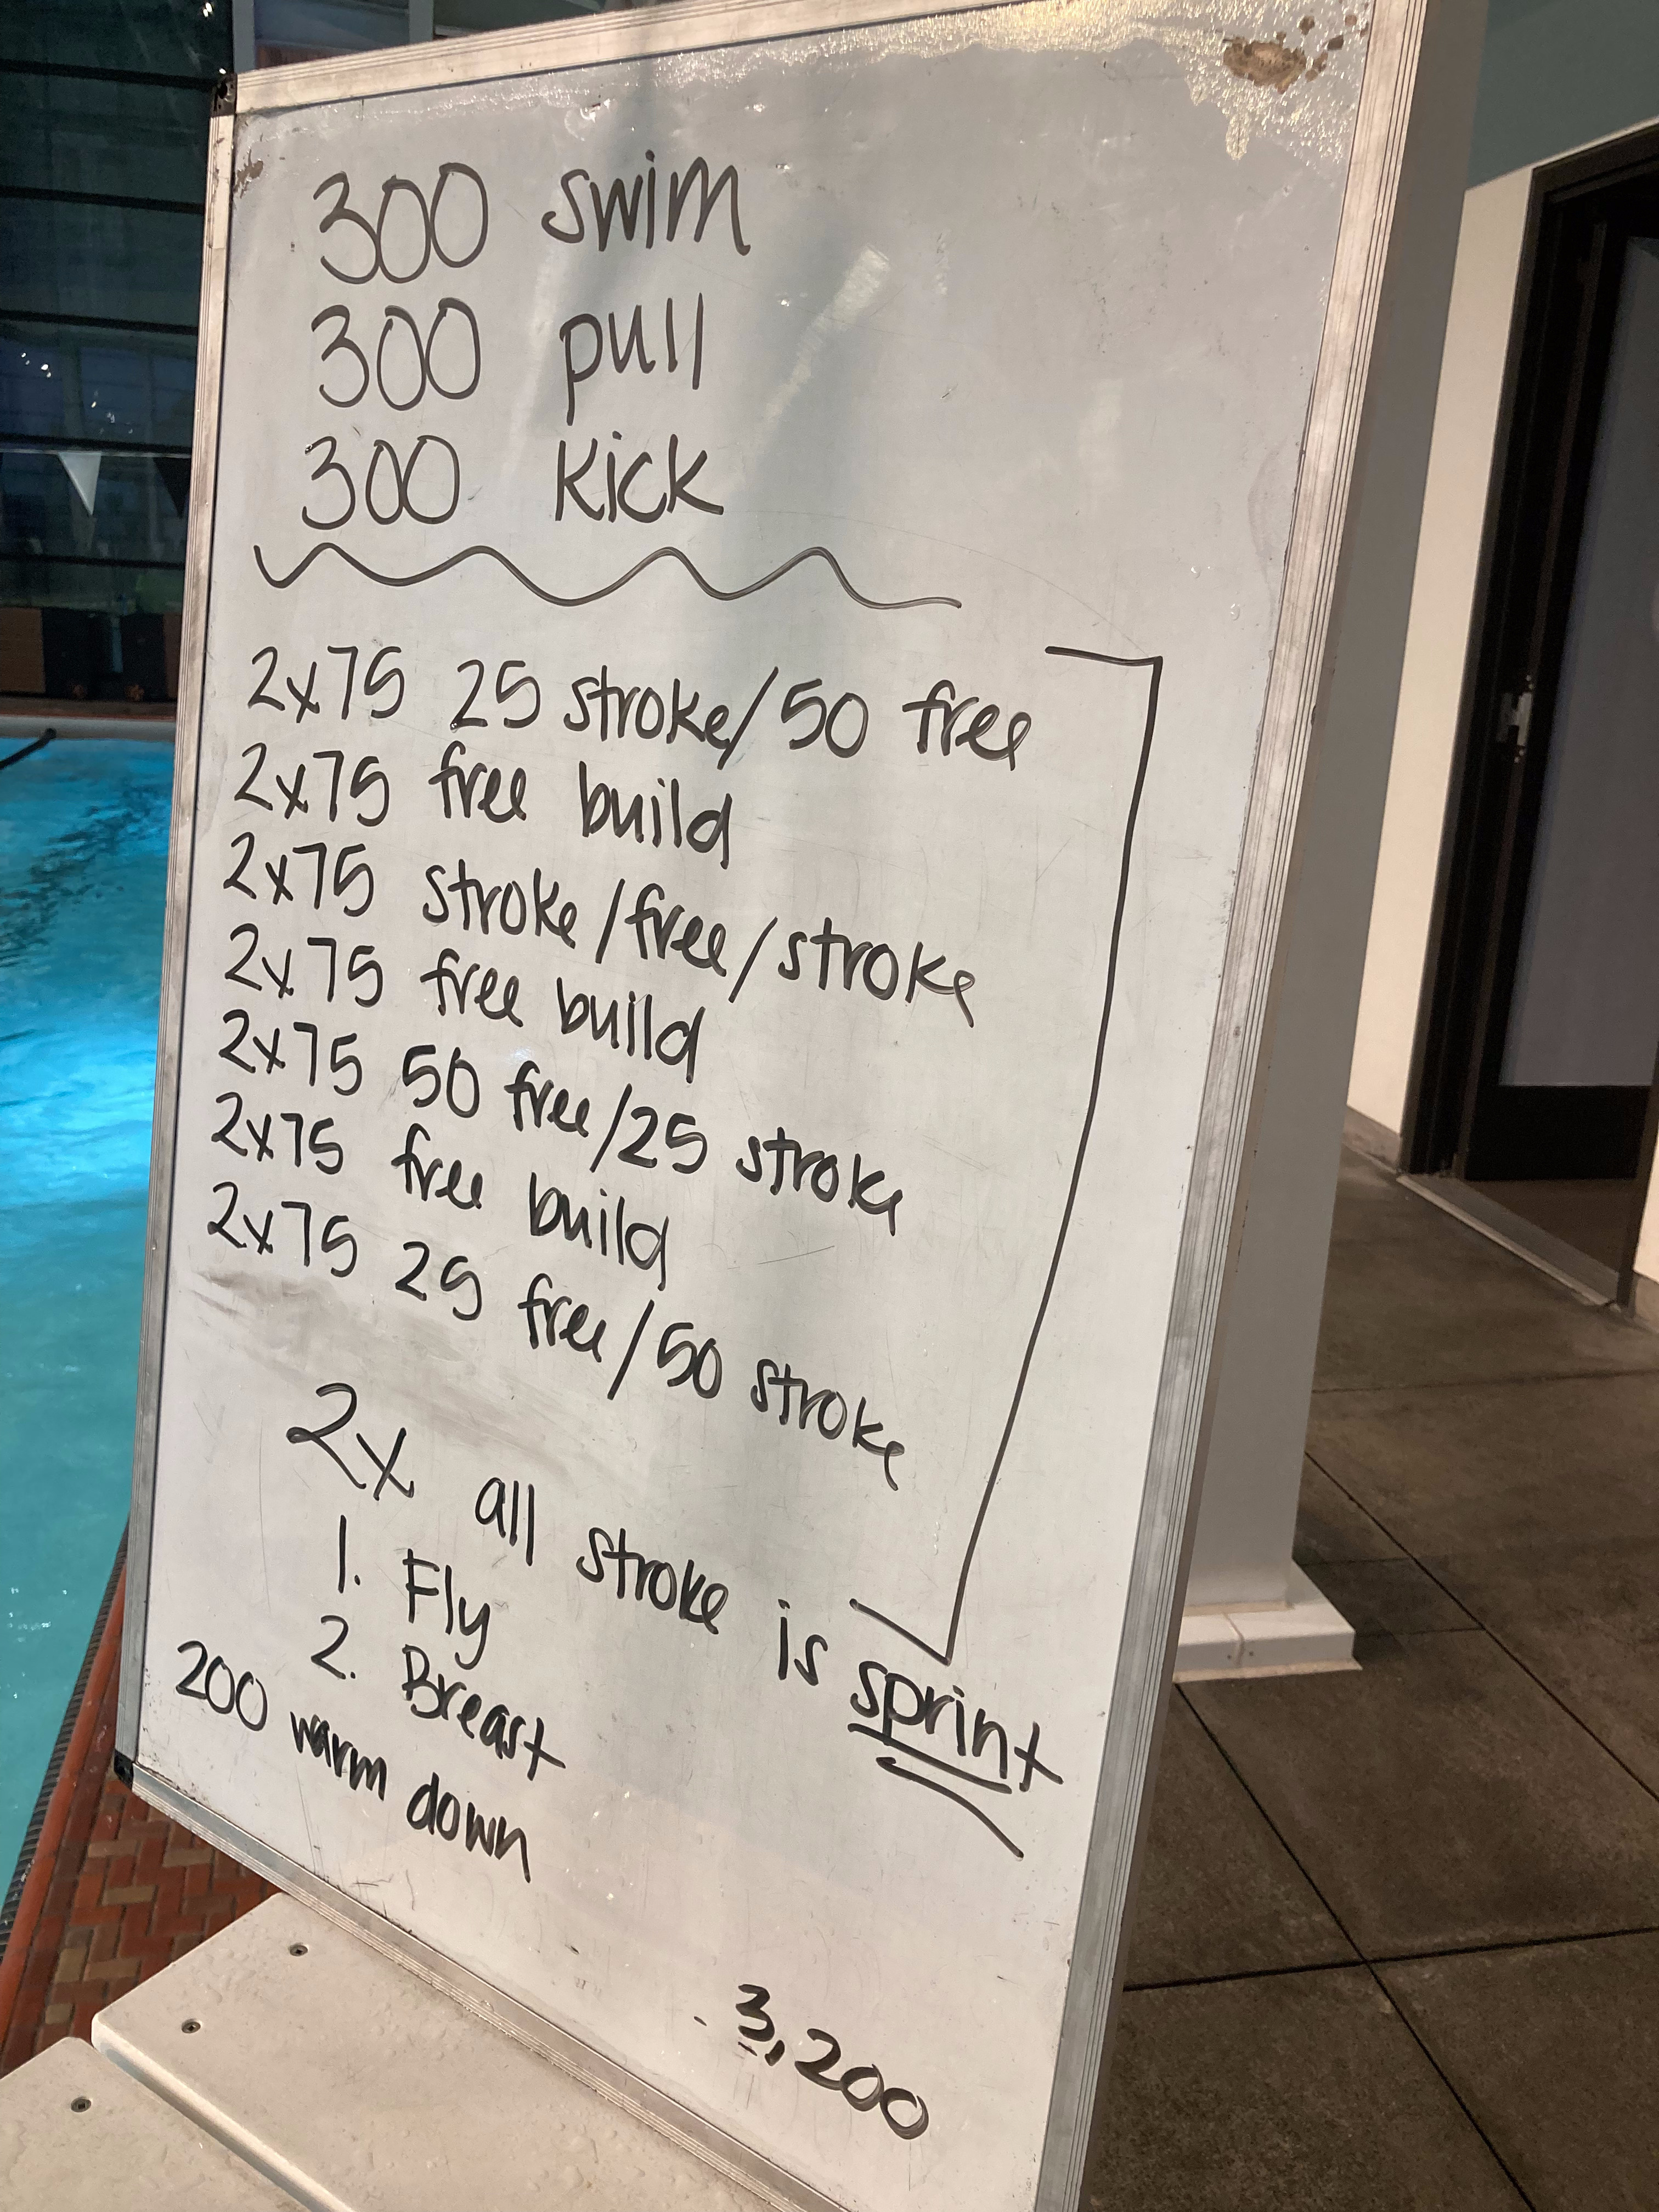 300 swim
300 pull
300 kick
2x75 25 stroke/50 free
2x75 free build
2x75 stroke/free/stroke
2x75 free build
2x75 50 free/25 stroke
2x75 free build
2x75 25 free/50 stroke
2x all stroke is sprint
1. Fly
2. Breast
200 warm down
3,200